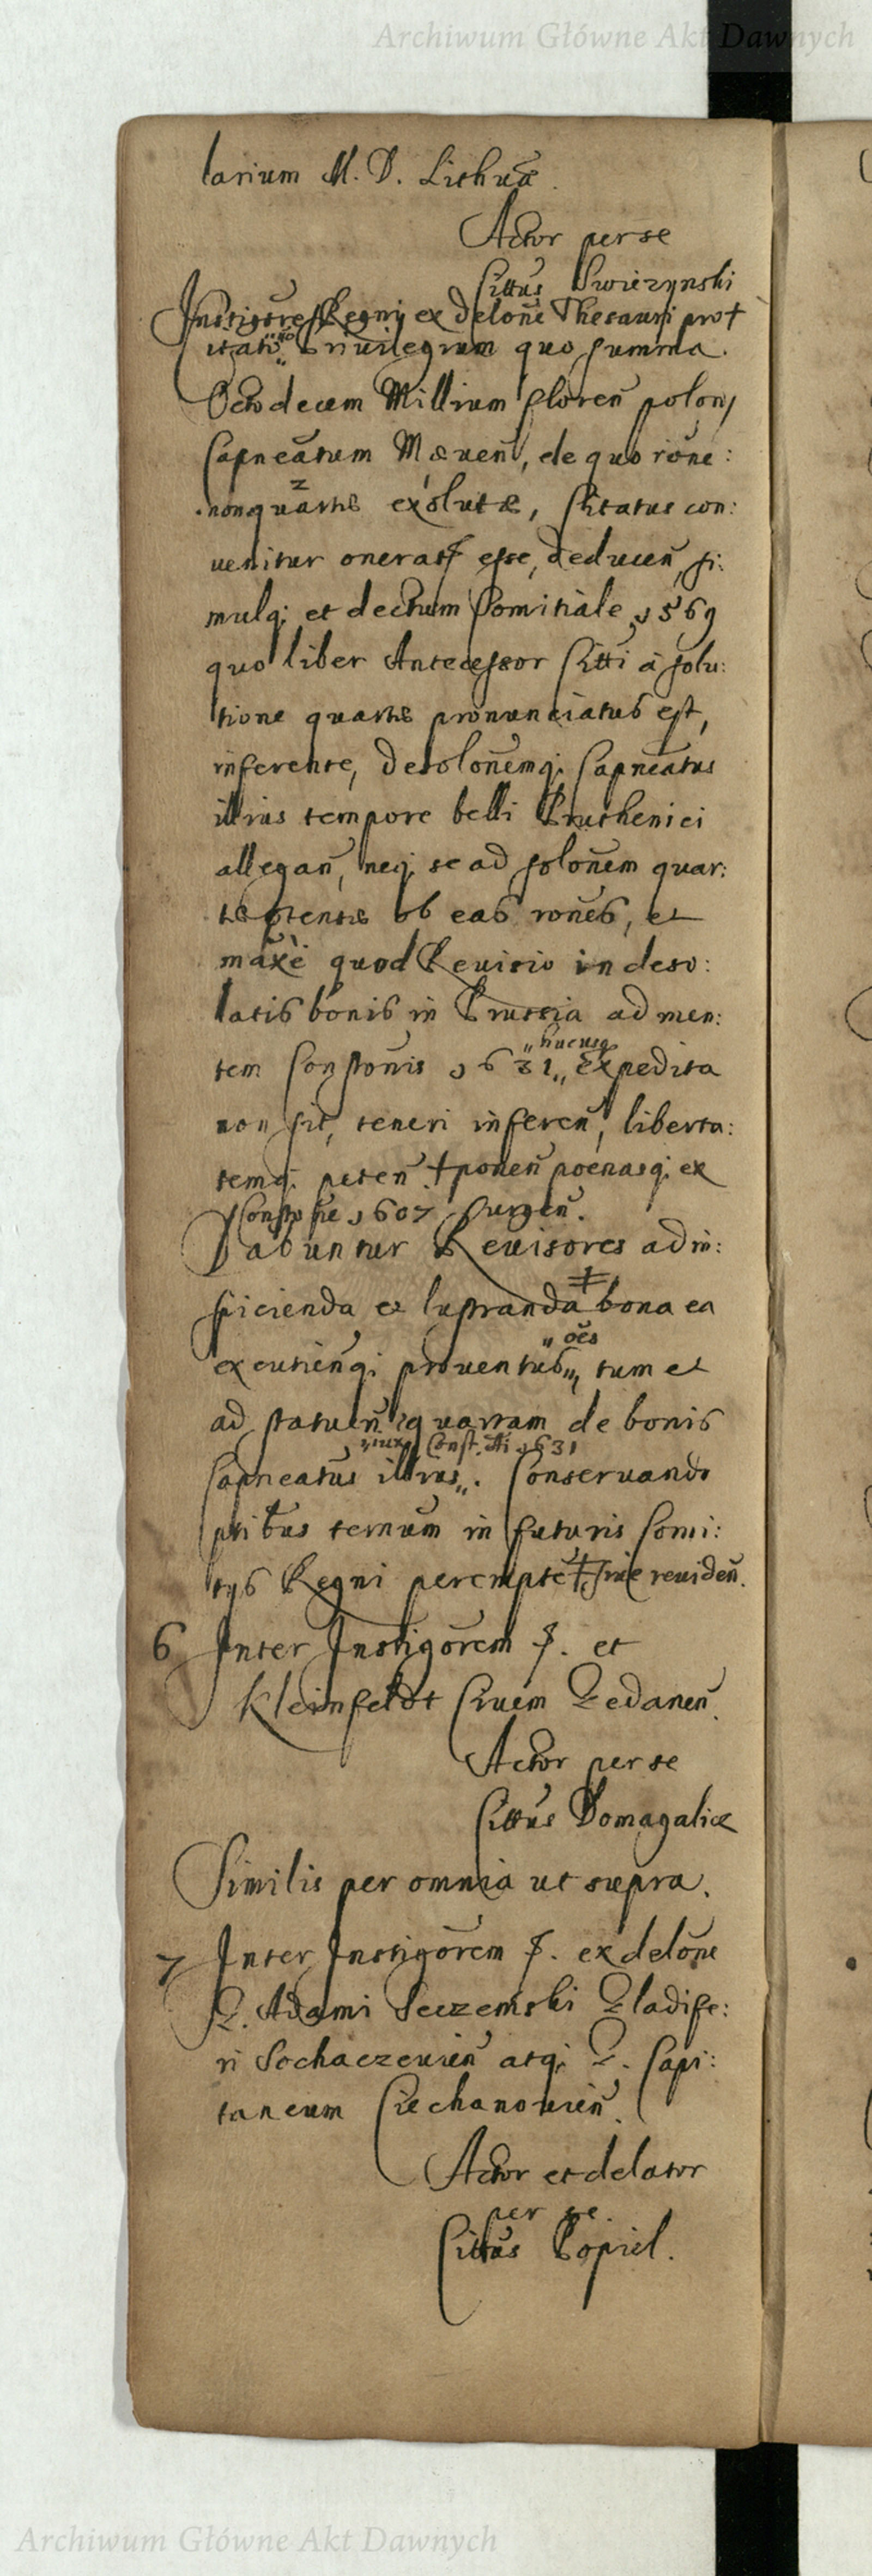 Archiwum Główne Akt Dawnych
larium M. D. Lithuã.
Actor per se
Cittus Swierzynski
Instigõre Regni ex delõne Thesauri pro†
Priuilegium quo summa.
Octodecem Millium floren̄ polon̄
Capneãtum Mæuen̄, de quo rõne:
nonquãrtæ exolutæ, Citatus con:
uenitur onerat̃ esse, deducen̄, si:
mulq; et dectum Comitiale 1569
quo liber Antecessor Citti à solu:
tione quartæ pronunciatus est,
inferente, desolõnemq; Capneãtus
illius tempore belli Pruthenici
allegan̄, neq; se ad solõnem quar:
ob eas rõnes, et
mãxè quod Reuisio in deso:
latis bonis in Prussia ad men:
„hucusq
tem Constõnis 1631„ expedita
non sit, teneri inferen̄, liberta:
temq; peten̄. †ponen̄ poenasq; ex
Constõne 1607 surgen̄.
Dabuntur Reuisores ad in:
spicienda et lustranda ‡ bona ea
„ões
excutienqi prouentus„, tum et
ad statuen̄ quartam de bonis
„iux Const. Ai 1631
Capneatus illius„. Conseruando
ptibus ternum in futuris Comi:
tys Regni perempte‡ siue reuiden̄.
6 Inter Instigõrem S. et
Kleinfeldt Ciuem Gedanen̄.
Actor per se
Cittus Domagalicz
Similis per omnia ut supra.
7 Inter Instigõrem S. ex delõne
G. Adami Seczemski Gladife:
ri Sochaczeuien̄ atq; G. Capi:
taneum Ciechanouien̄.
Actor et delator
per se.
Cittus Popiel.
Archiwum Główne Akt Dawnych